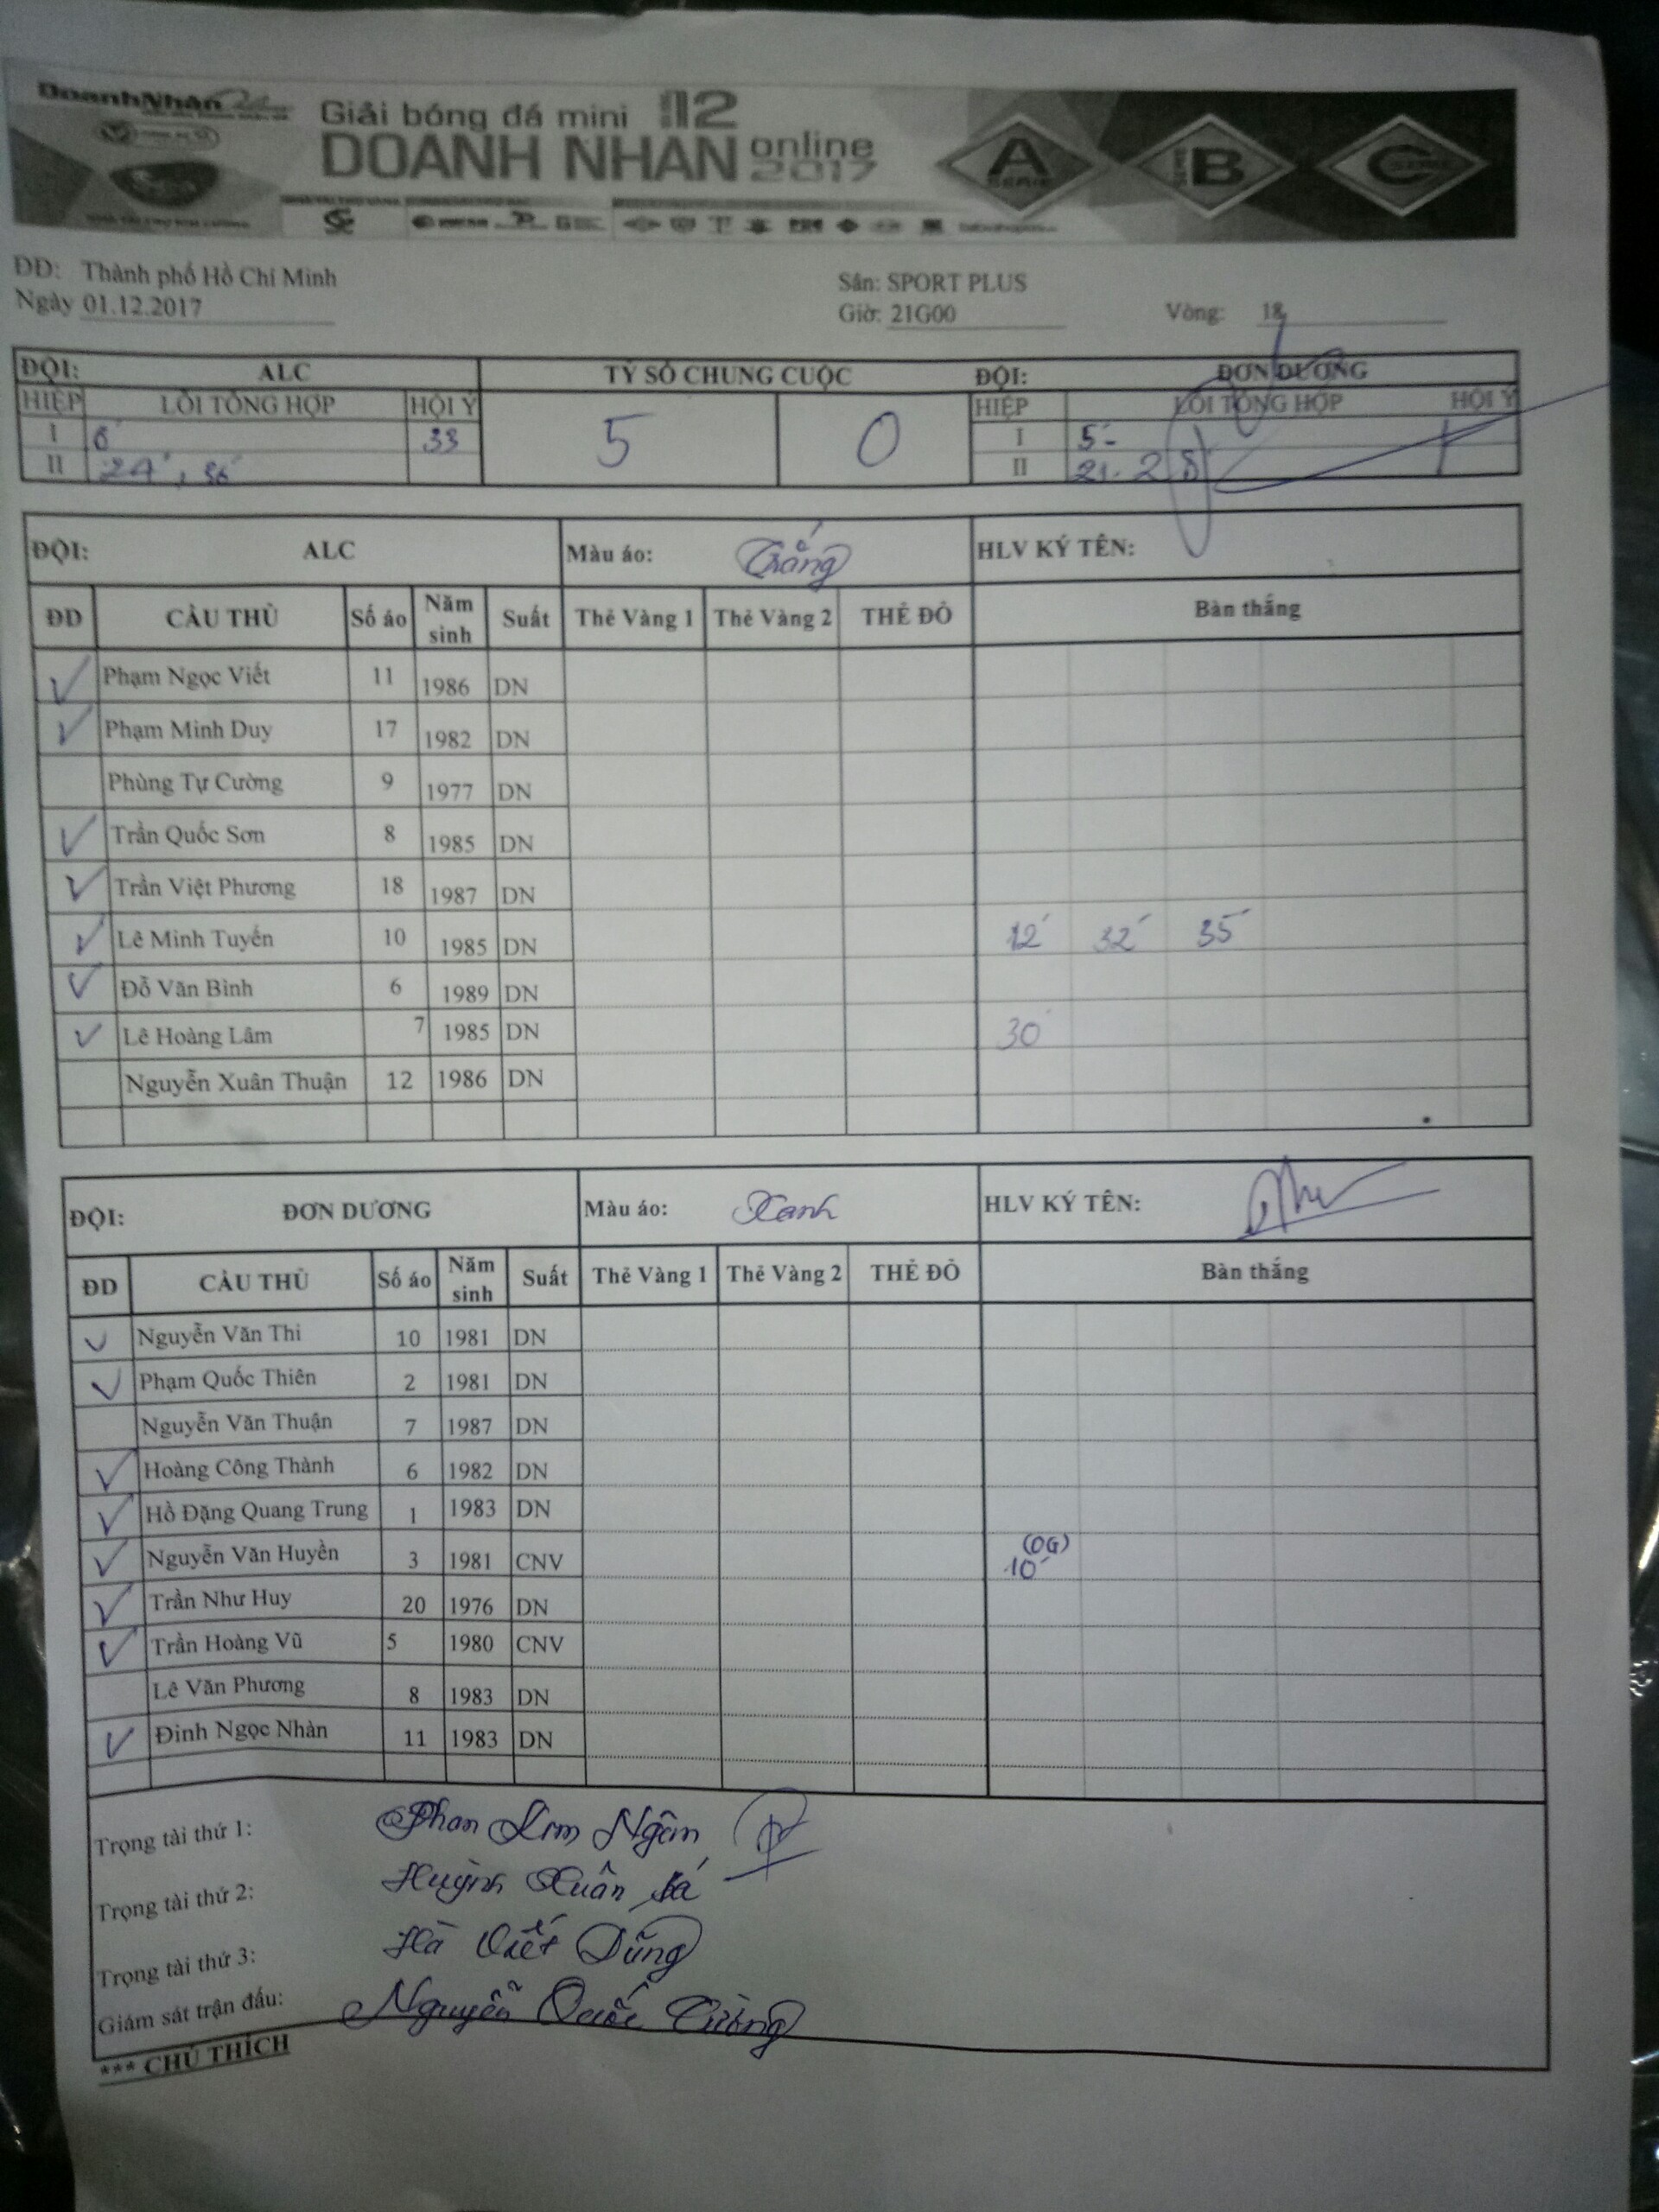 DoanhNhân
Giải bóng đá mini 12
DOANH NHAN online 2017
A SERIE B C
ĐĐ: Thành phố Hồ Chí Minh Sân: SPORT PLUS
Ngày 01.12.2017 Giờ: 21G00 Vòng: 18
ĐỘI: ALC TỶ SỐ CHUNG CUỘC ĐỘI: ĐƠN DƯƠNG
HIỆP LỖI TỔNG HỢP HỘI Ý 5 0 HIỆP LỖI TỔNG HỢP HỘI Ý
I 6' 33 I 5'
II 24', 36' II 21' 28
ĐỘI: ALC Màu áo: Trắng HLV KÝ TÊN:
ĐD CẦU THỦ Số áo Năm sinh Suất Thẻ Vàng 1 Thẻ Vàng 2 THẺ ĐỎ Bàn thắng
Phạm Ngọc Viết 11 1986 DN
Phạm Minh Duy 17 1982 DN
Phùng Tự Cường 9 1977 DN
Trần Quốc Sơn 8 1985 DN
Trần Việt Phương 18 1987 DN
Lê Minh Tuyến 10 1985 DN 12' 32' 35'
Đỗ Văn Bình 6 1989 DN
Lê Hoàng Lâm 7 1985 DN 30'
Nguyễn Xuân Thuận 12 1986 DN
ĐỘI: ĐƠN DƯƠNG Màu áo: Xanh HLV KÝ TÊN:
ĐD CẦU THỦ Số áo Năm sinh Suất Thẻ Vàng 1 Thẻ Vàng 2 THẺ ĐỎ Bàn thắng
Nguyễn Văn Thi 10 1981 DN
Phạm Quốc Thiên 2 1981 DN
Nguyễn Văn Thuận 7 1987 DN
Hoàng Công Thành 6 1982 DN
Hồ Đặng Quang Trung 1 1983 DN
Nguyễn Văn Huyền 3 1981 CNV (OG) 10'
Trần Như Huy 20 1976 DN
Trần Hoàng Vũ 5 1980 CNV
Lê Văn Phương 8 1983 DN
Đinh Ngọc Nhàn 11 1983 DN
Trọng tài thứ 1: Phan Kim Ngân
Trọng tài thứ 2: Huỳnh Xuân Bá
Trọng tài thứ 3: Hà Viết Dũng
Giám sát trận đấu: Nguyễn Quốc Cường
*** CHÚ THÍCH